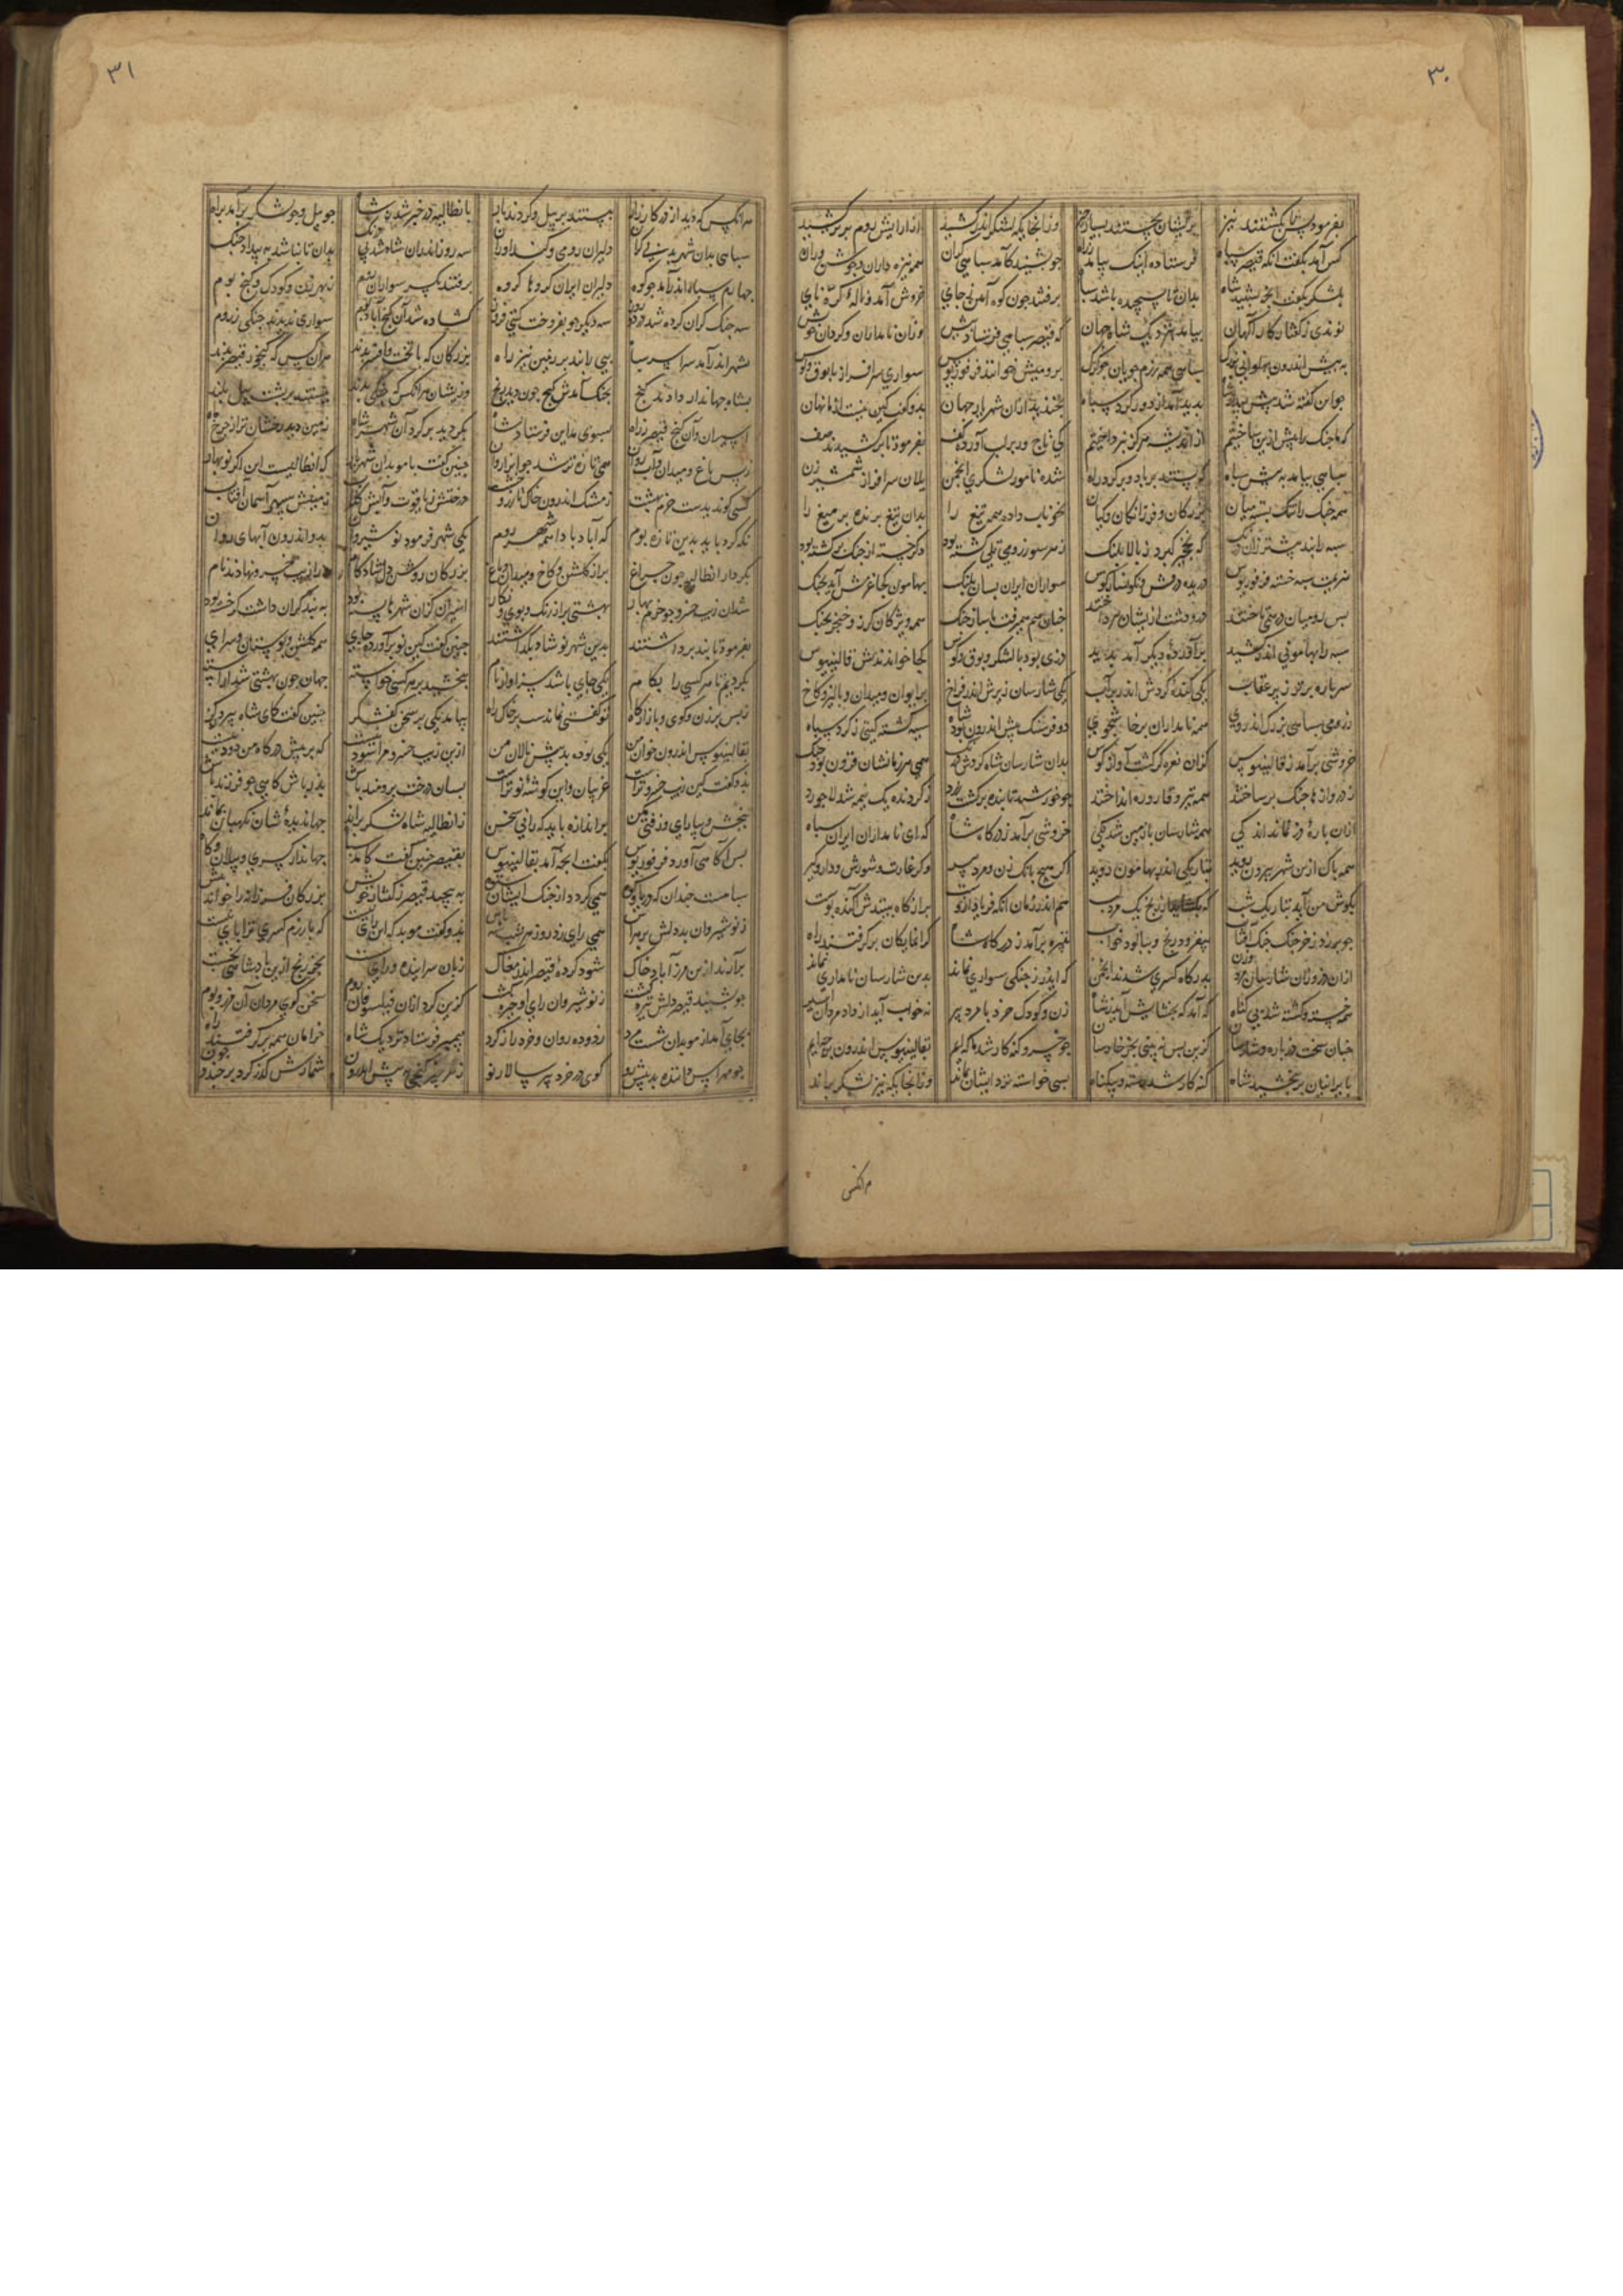 ۳۰
بفرمود پس تاش کشتند نیز بریشان بجستند بسیار چیز وزانجا یکه لشکر اندر کشید از آرایش روم برتر کشید
کس آمد بکفت انکه قیصر سپاه فرستاده اینک بیامد براه جو بشنید کآمد سپاهی کران همه نیزه داران و جوشن وران
بلشکر بکفت انچه بشنید شاه بدان تا پسیچده باشد سپاه برفتند جون کوه آهن ز جای خروش آمد و نالهٔ کره نای
نوندی ز کفتار کار آکهان بیامد بنزدیک شاه جهان که قیصر سپاهی فرستاد پیش ازان نامداران و کردان خویش
به پیش اندرون پهلوانی بزرک سپاهی همه رزم جویان جو کرک برومیش خوانند فرفوریوس سواری سر افراز با بوق و کوس
جو این کفته شد پیش بیدار شاه پدید آمد از دور کرد سپاه بخندید ازان شهریار جهان بدو کفت کین نیست از ما نهان
که ما جنک را پیش ازین ساختیم از اندیشه هرکز نپرداختیم کی تاج ور بر لب آورد کف بفرمود تا برکشیدند صف
سپاهی بیامد به پیش سپاه که بستند بر باد و بر کرد راه شده نامور لشکری انجمن یلان سر افراز شمشیر زن
همه جنک را تنک بسته میان بزرکان و فرزانکان و کیان بخوناب داده همه تیغ را بدان تیغ برنده مر میغ را
سپه را نبد بیشتر زان درنک که نخجیر کیرد ز بالا پلنک ز هر سو ز رومی تلی کشته بود دکر خسته از جنک برکشته بود
هزیمت سپه خسته فرفوریوس دریده درفش و نکونسار کوس سواران ایران بسان پلنک بهامون کجا غرمش آید بچنک
پس رومیان در همی تاختند در و دشت ازیشان بپرداختند جنان هم همی رفت با ساز جنک همه ویژکان کرز و خنجر بچنک
سپه را بهامونی اندر کشید برآورده دیکر آمد پدید دزی بود با لشکر و بوق و کوس کجا خواندندش قالینیوس
سر باره برتر ز پر عقاب یکی کنده کردش اندر پر آب یکی شارسان زیرش اندر فراخ پر ایوان و میدان و پالیز و کاخ
ز رومی سپاهی بزرک اندروی همه نامداران پرخاشجوی دو فرسنک پیش اندرون بود شاه سیه کشته کیتی ز کرد سپاه
خروشی برآمد ز قالینیوس کزان نعره کم کشت آواز کوس بدان شارسان شاه کردش نکه همی هر زمانشان فزون بود جنک
ز دروازها جنک برساختند همه تیر و قاروره انداختند جو خورشید تابنده برکشت زرد ز کردنده یک نیمه شد لاجورد
ازان بارهٔ دز نماند اندکی همه شارسان با زمین شد یکی خروشی برآمد ز درکاه شاه که ای نامداران ایران سپاه
همه پاک ازین شهر بیرون روید بتاریکی اندر بهامون روید اکر هیچ بانک زن و مرد پیر وکر غارت و شورش و دار و کیر
بکوش من آید بتاریک شب که بکشاید از رنج یک مرد لب هم اندر زمان انکه فریاد ازوست پر از کاه بینند شآکنده پوست
جو برزد ز خرجنک جنک آفتاب بفرسود رنج و بپالود خواب تبیره برآمد ز درکاه شاه کرانمایکان برکرفتند راه
ازان دز و زان شارسان مرد و زن بدرکاه کسری شدند انجمن که ایدر ز جنکی سواری نماند بدین شارسان نامداری نماند
همه خسته و کشته شد بی کناه که آمد که بخشایش آید ز شاه زن و کودک خرد با مرد پیر نه خواب آید از داد مردان اسیر
جنان سخت دز باره و شارسان کزین پس نه بینی بجز خارسان جو خسرو کنه کار شد ما که ایم بقالینیوس اندرون بر چه ایم
بایرانیان بر ببخشید شاه کنه کار شد رسته و بیکناه بسی خواسته نزد ایشان بماند وزانجا یکه تیز لشکر براند
هرانکس
۳۱
هرانکس که دید از در کارزار ببستند بر پیل و کردند بار بانطالیه در خبر شد ز شاه جو پیل و جو لشکر برآمد براه
سپاهی بدان شهر بد بی کران دلیران رومی و کند آوران سه روز اندران شاه شد با درنک بدان تا نباشد به بیداد جنک
جهارم سپاه اندرآمد جو کوه دلیران ایران کروها کروه برفتند یکسر سواران روم ز بهر زن و کودک و کنج و بوم
سه جنک کران کرده شد در سه روز سه دیکر جو بفروخت کیتی فروز کشاده شد آن کنج آباد بوم سواری ندیدند جنکی ز روم
بشهر اندر آمد سراسر سپاه پیی را نبد بر زمین نیز راه بزرکان که با تخت و افسر بدند هران کس که کنجور قیصر بدند
بشاه جهاندار دادند کنج بجنک آمدش کنج جون دید رنج وزیشان هرانکس که جنکی بدند ببستند بر پشت پیل بلند
اسیران و آن کنج قیصر براه بسوی مداین فرستاد شاه بکردید بر کرد آن شهر شاه زمین دید رخشان تر از چرخ ماه
ز پس باغ و میدان و آب روان همی تازه تر شد جو پیر از جوان جنین کفت با موبدان شهریار که انطالیست این اکر نو بهار
کسی کو ندیدست خرم بهشت ز مشک اندرون خاک و زر خشت درختش ز یاقوت و آبش کلاب زمینش سپهر آسمان آفتاب
نکه کرد باید بدین تازه بوم که آباد بادا همه شهر روم یکی شهر فرمود نوشیروان بدو اندرون آبهای روان
بکردار انطالیه جون جراغ پر از کلشن و کاخ و میدان و باغ بزرکان روشن دل شاد کام ورا زیب خسرو نهادند نام
شد آن زیب خسرو جو خرم بهار بهشتی پر از رنک و بوی و نکار اسیران کزان شهرها بسته بود به بند کران دست و پا خسته بود
بفرمود تا بند برداشتند بدین شهر نو شاد بکذاشتند جنین کفت کین نو برآورده جای همه کلشن و بوستان و سرای
بکردیم تا هر کسی را بکام یکی جای باشد سزاوار نام ببخشید بر هر کسی خواسته جهان جون بهشتی شد آراسته
ز پس برزن و کوی و بازارکاه تو کفتی نماندست بر خاک راه بیامد یکی پر سخن کفشکر جنین کفت کای شاه بیدادکر
بقالینیوس اندرون خوان من یکی توده بد پیش پالان من ازین زیب خسرو مرا سود نیست که بر پیش درکاه من تود نیست
بدو کفت کین زیب خسرو تراست غریبان و این کوشهٔ نو تراست بسان درخت برومند باش پدر باش کاهی جو فرزند باش
ببخش و بیارای و زفتی مکن بر اندازه باید که رانی سخن ز انطالیه شاه لشکر براند جهاندیدهٔ شان نکهبان بماند
پس آکاهی آورد فرفوریوس بکفت انچه آمد بقالینیوس بقیصر جنین کفت کآمد سپاه جهاندار کسری و پیلان و کاه
سپاهست جندان که دریا و کوه همی کردد از جنک ایشان ستوه به پیچید قیصر ز کفتار خویش بزرکان فرزانه را خواند پیش
ز نوشیروان بد دلش پر هراس همی رای زد روز و شب سه پاس بدو کفت موبد که این رای نیست که با رزم کسری ترا پای نیست
برآرند ازین مرز آباد خاک شود کردهٔ قیصر اندر مغاک زبان سراینده و رای سست بجز رنج ازین پادشاهی نجست
جو بشنید قیصر دلش تیره کشت ز نوشیروان رای او خیره کشت کزین کرد ازان فیلسوفان روم سخن کوی مردان آن مرز و بوم
بجای آمد از موبدان شست مرد زدوده روان و خرد را ز کرد پیمبر فرستاد نزدیک شاه خرامان همه برکرفتند راه
جو مهراس داننده بد پیش رو کوی در خرد پیر و سالار نو ز هر چیز کنجی به پیش اندرون شمارش کذر کرد بر چند و چون